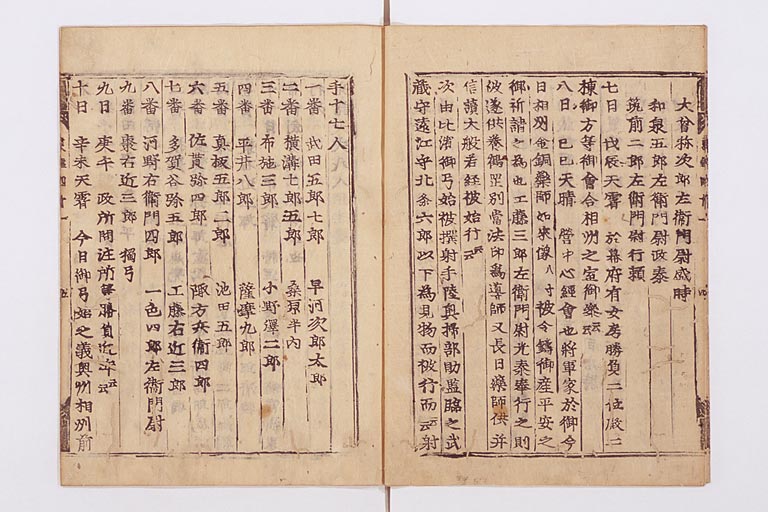 大曾祢次郎左衛門尉盛時
和泉五郎左衛門尉政泰
筑前二郎左衛門尉行頼
七日 戊辰天霽 於幕府有女房勝負二位殿二
棟御方等御會合相州之室御樂云云
八日 己巳天晴 營中心經會也將軍家於御今
日相州金銅藥師如來像八寸被令鑄御産平安之
御祈禱之為也工藤三郎左衛門尉光泰奉行之則
被遂供養鶴岡別當法印為導師又長日藥師供并
信讀大般若經被始行云云
次由比濱御弓始被撰射手陸奥掃部助監臨之武
藏守遠江守北条六郎以下為見物而被行而云云射
手十七人
一番 武田五郎七郎 早河次郎太郎
二番 横溝七郎五郎 桑原平内
三番 布施三郎 小野澤二郎
四番 平井八郎 薩摩九郎
五番 真板五郎二郎 池田五郎
六番 佐貫弥四郎 諏方兵衛四郎
七番 多賀谷弥五郎 工藤右近三郎
八番 河野右衛門四郎 一色四郎左衛門尉
九番 棗右近三郎 獨弓
九日 庚午 政所問注所勝負近年云云
十日 辛未天霽 今日御弓始之議奥州相州前